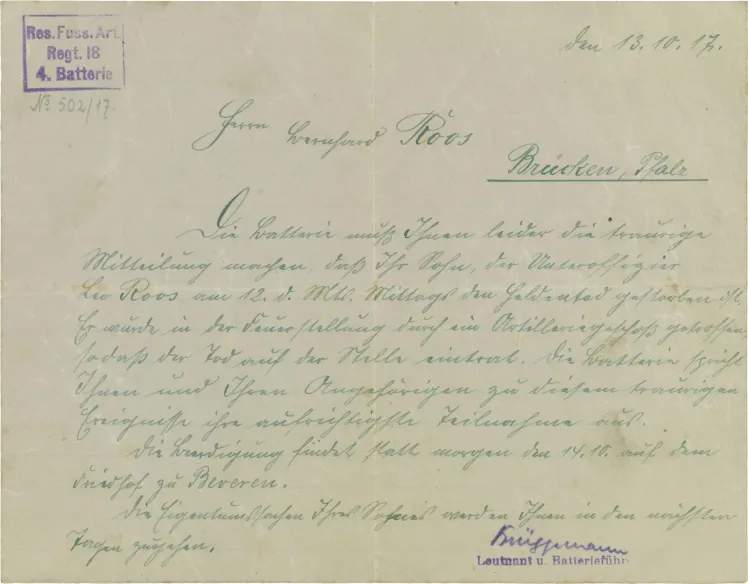 Res. Fuss. Art.
Regt. 18
4. Batterie
№ 502/17.
den 13.10.17.
Herrn Bernhard Roos
Brücken, Pfalz
Die Batterie muß Ihnen leider die traurige
Mitteilung machen, daß Ihr Sohn, der Unteroffizier
Leo Roos am 12. d. Mts. Mittags den Heldentod gestorben ist.
Er wurde in der Feuerstellung durch ein Artilleriegeschoß getroffen,
sodaß der Tod auf der Stelle eintrat. Die Batterie spricht
Ihnen und Ihren Angehörigen zu diesem traurigen
Ereignisse ihre aufrichtigste Teilnahme aus.
Die Beerdigung findet statt morgen den 14.10. auf dem
Friedhof zu Beveren.
Die Eigentumssachen Ihres Sohnes werden Ihnen in den nächsten
Tagen zugehen.
Brüggemann
Leutnant u. Batterieführ.